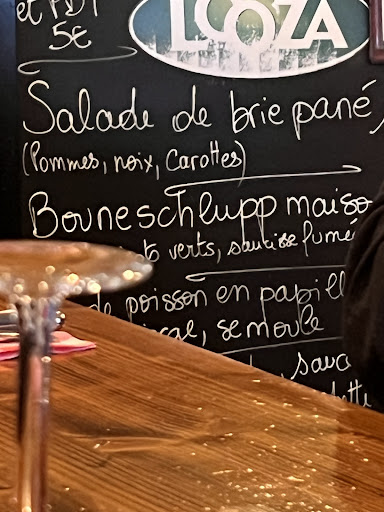 et PDT
5€
LOOZA
Salade de brie pané,
(Pommes, noix, Carottes)
Bouneschlupp maiso
verts, saucisse fumé
de poisson en papill
semoule
sauc